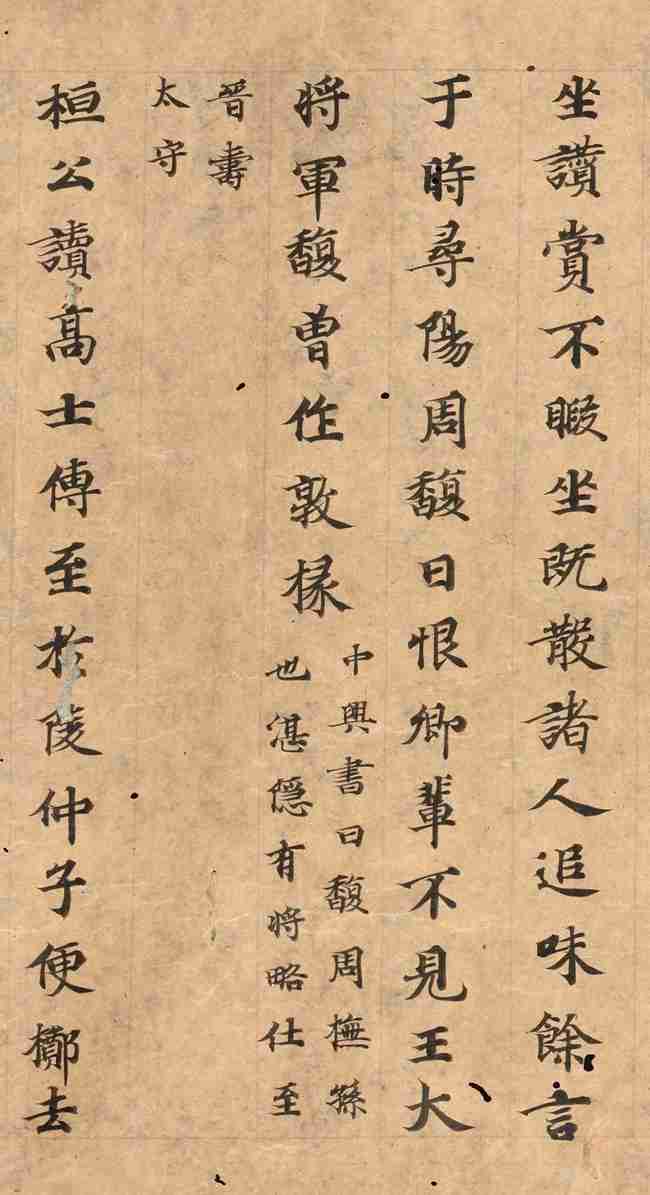 坐讚賞不暇坐既散諸人追味餘言
于時尋陽周馥曰恨卿輩不見王大
將軍馥曽作敦掾
中興書曰馥周撫孫
也湛隠有将略仕至
晉壽
太守
桓公讀髙士傳至於陵仲子便擲去